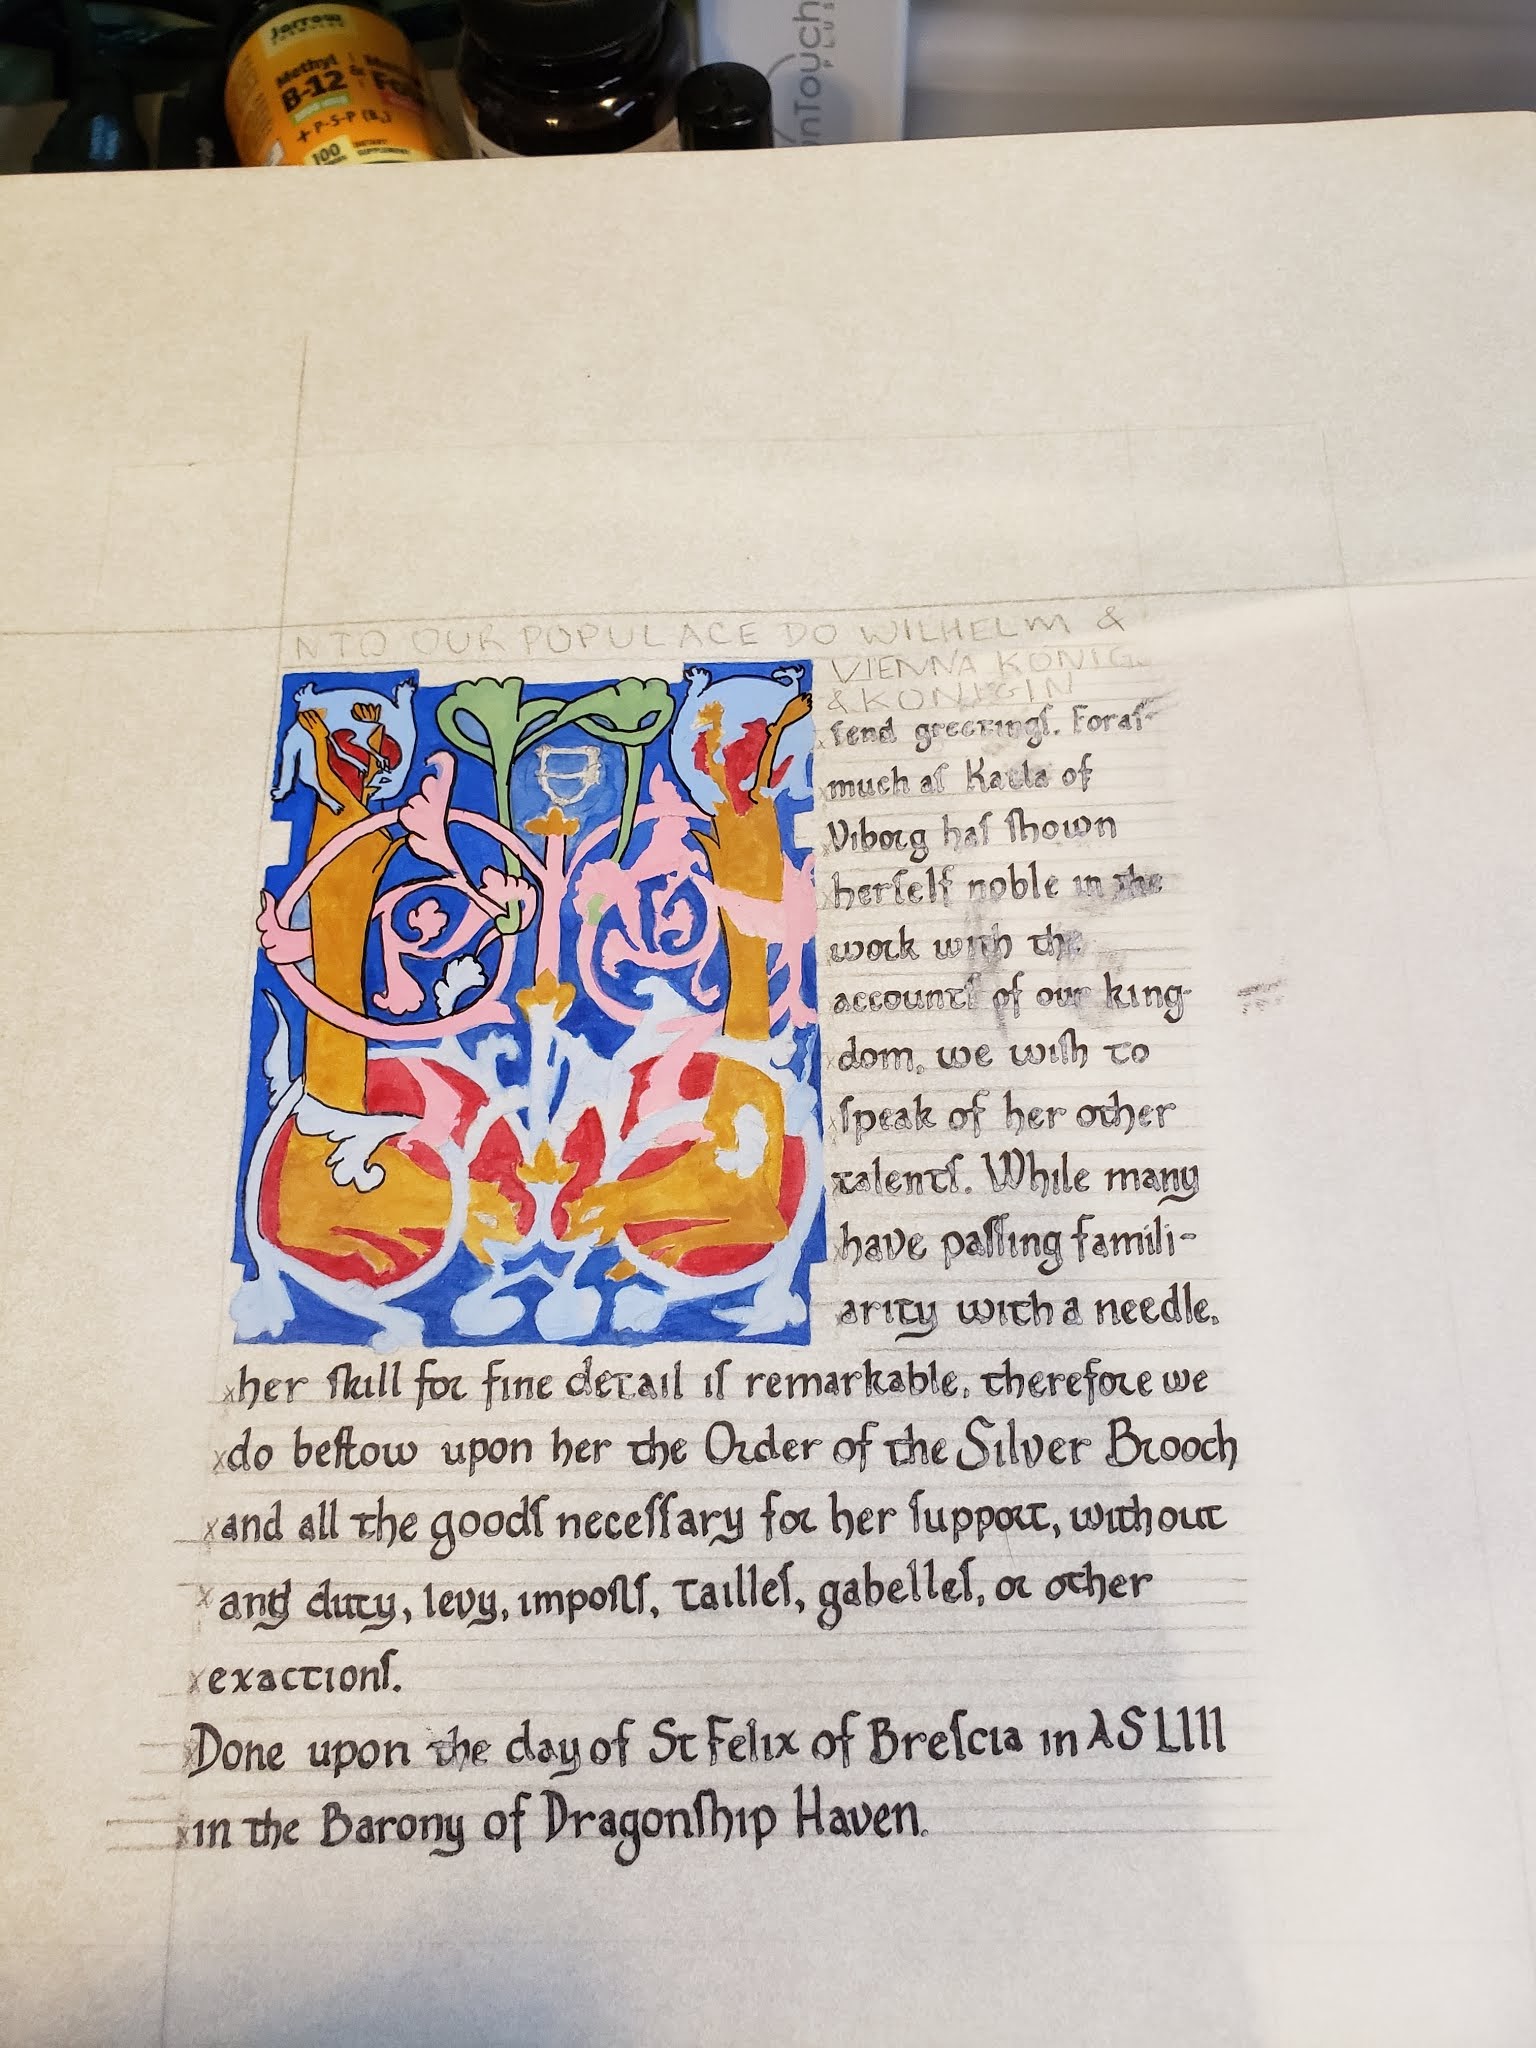 Jarrow
FORMULAS
Methyl
B-12 &
+ P-5-P (B₆)
100
inTouch
PLUS
NTO OUR POPULACE DO WILHELM &
VIENNA KÖNIG
& KÖNIGIN
ſend greetingſ. Foraſ-
much aſ Kaela of
Viborg haſ ſhown
herſelf noble in the
work with the
accountſ of our king-
dom, we wiſh to
ſpeak of her other
talentſ. While many
have paſſing famili-
arity with a needle,
her ſkill for fine detail iſ remarkable, therefore we
do beſtow upon her the Order of the Silver Brooch
and all the goodſ neceſſary for her ſupport, without
duty, levy, impoſtſ, tailleſ, gabelleſ, or other
exactionſ.
Done upon the day of St Felix of Breſcia in AS LIII
in the Barony of Dragonſhip Haven.